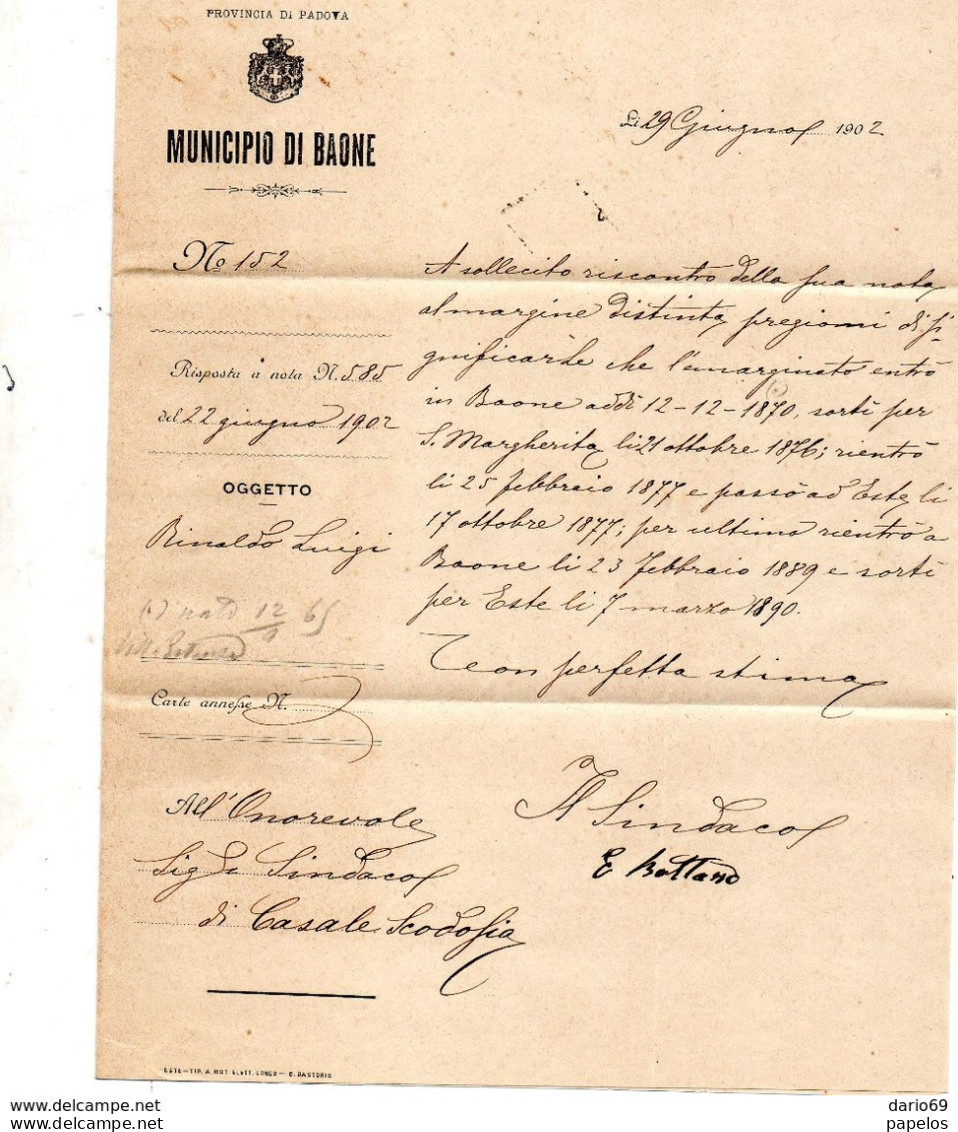 PROVINCIA DI PADOVA
MUNICIPIO DI BAONE
Li 29 Giugno 1902
No 152
Risposta a nota N. 585
del 22 giugno 1902
OGGETTO
Rinaldo Luigi
nato 12 65
Carte annesse N.
All'Onorevole
Sig. Sindaco
di Casale Scodosia
A sollecito riscontro della sua nota
al margine distinta pregiomi di si-
gnificarle che l'emarginato entrò
in Baone addì 12-12-1870, sortì per
S. Margherita li 21 ottobre 1876; rientrò
li 25 febbraio 1877 e passò ad Este li
17 ottobre 1877; per ultimo rientrò a
Baone li 23 febbraio 1889 e sortì
per Este li 7 marzo 1890.
Con perfetta stima
Il Sindaco
E
ESTE - TIP. A MOT. ELETT. LONGO -
dario69
http://www.delcampe.net
papelos